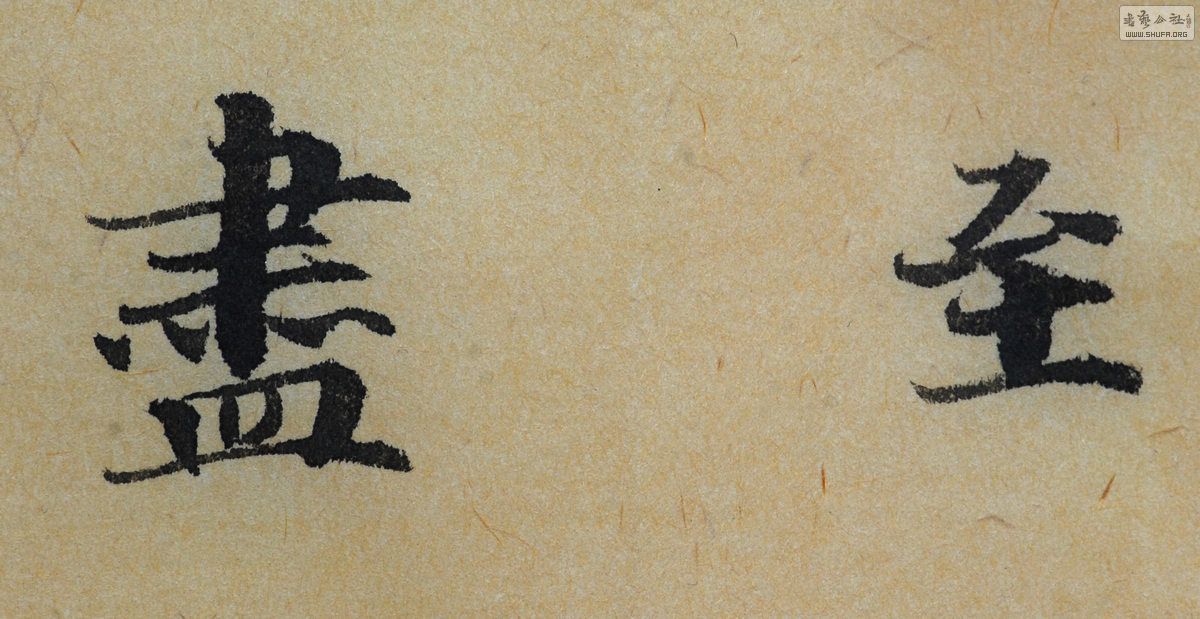 至
盡
書艺公社
WWW.SHUFA.ORG